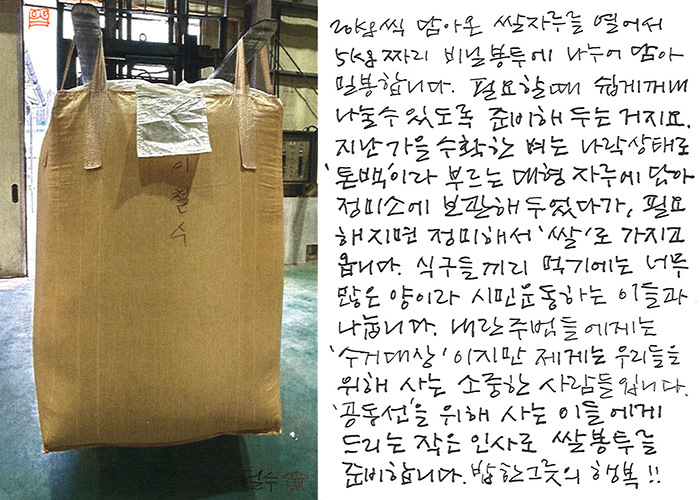 이철수
20kg씩 담아온 쌀자루를 열어서
5kg짜리 비닐봉투에 나누어 담아
밀봉합니다. 필요할때 쉽게꺼내
나눌수 있도록 준비해 두는 거지요.
지난가을 수확한 벼는 나락상태로
'톤백'이라 부르는 대형 자루에 담아
정미소에 보관해 두었다가, 필요
해지면 정미해서 '쌀'로 가지고
옵니다. 식구들끼리 먹기에는 너무
많은 양이라 시민운동하는 이들과
나눕니다. 내란주범들에게는
'수거대상'이지만 제게는 우리들을
위해 사는 소중한 사람들입니다.
'공동선'을 위해 사는 이들에게
드리는 작은 인사로 쌀봉투를
준비합니다. 밥한그릇의 행복!!
철수